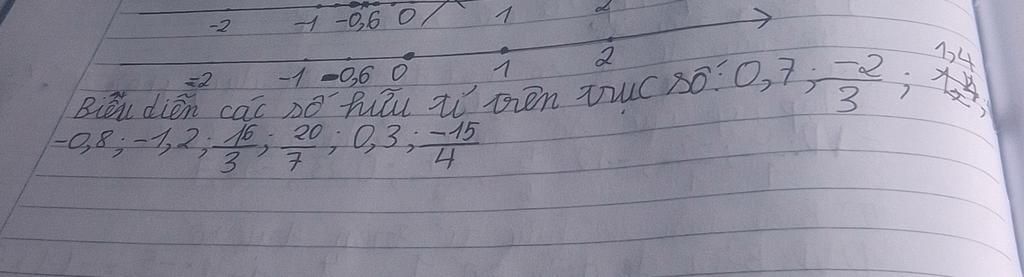 -2 -1 -0,6 0 1 2
-2 -1 -0,6 0 1 2
Biểu diễn các số hữu tỉ trên trục số: 0,7; \frac{-2}{3}; 1,4;
-0,8; -1,2; \frac{16}{3}; \frac{20}{7}; 0,3; \frac{-15}{4}